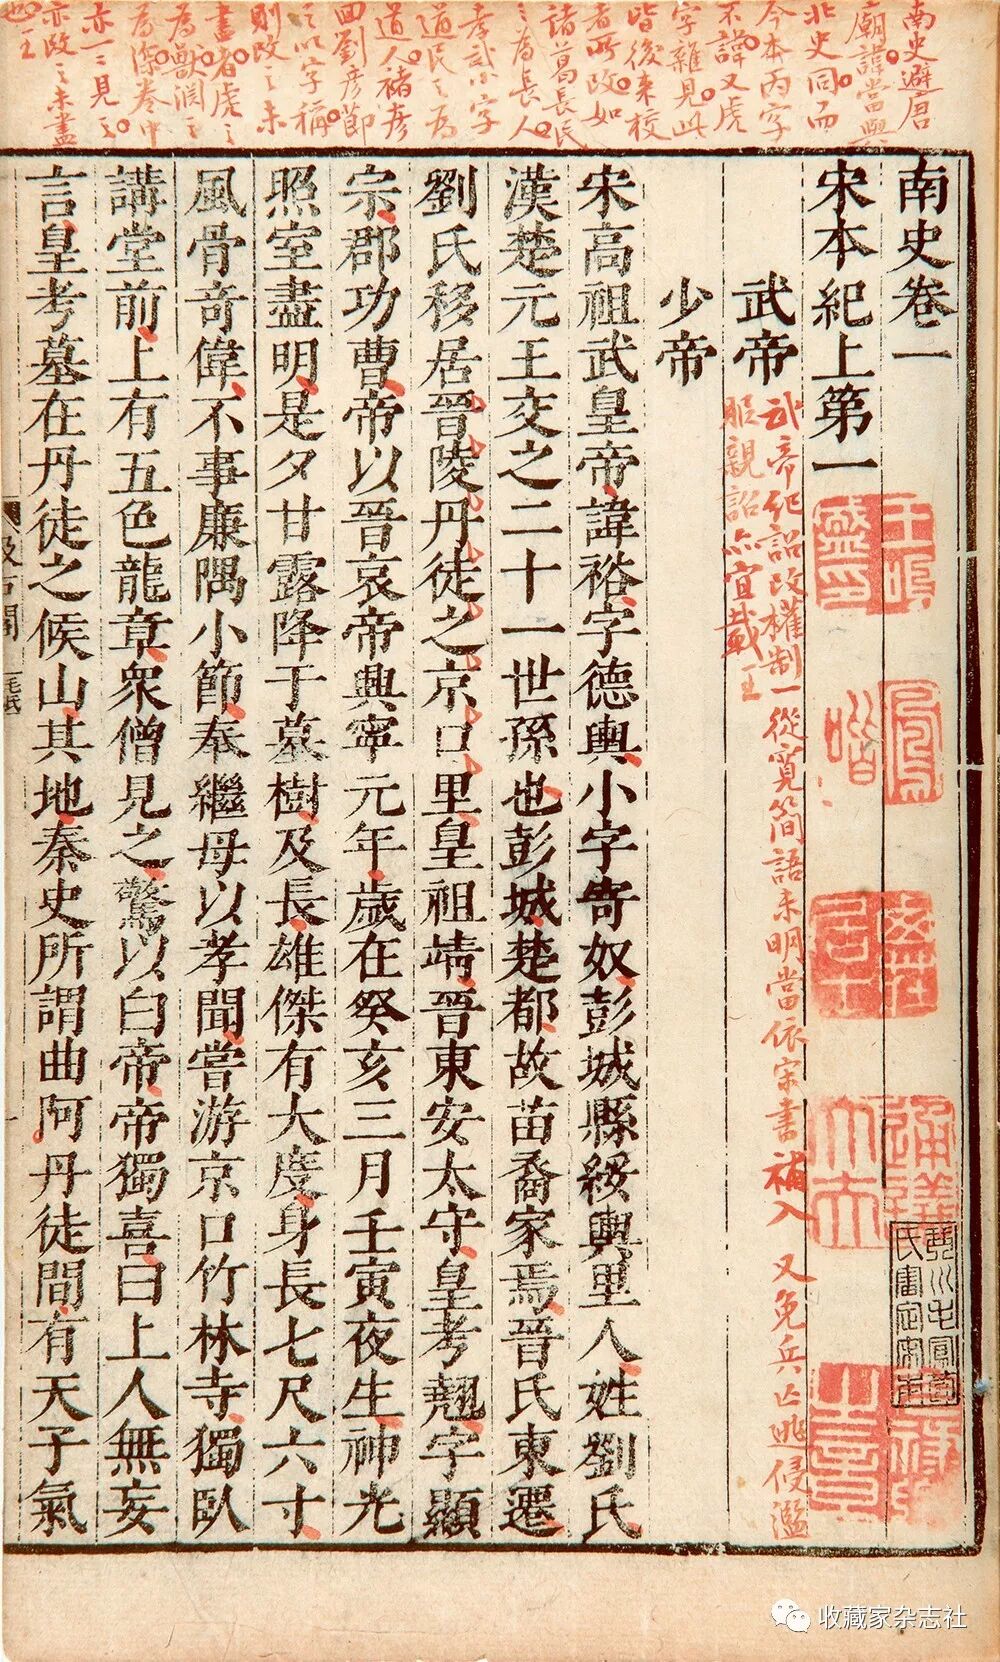 南史避唐
廟諱當與
北史同而
今本丙字
不諱又虎
字雜見此
皆後來校
者所改如
諸葛長民
之為長人
孝武小字
道民之為
道人褚彦
回劉彦節
之以字稱
則改之未
盡者虎之
為獸淵之
為深卷中
亦一二見之
亦改之未盡
也王
南史卷一
宋本紀上第一
武帝
武帝紀詔改權制一從寬簡語未明當依宋書補入 又免兵亡逃侵濫
服親詔亦宜載 王
少帝
宋高祖武皇帝諱裕字德輿小字寄奴彭城縣綏輿里人姓劉氏
漢楚元王交之二十一世孫也彭城楚都故苗裔家焉晉氏東遷
劉氏移居晉陵丹徒之京口里皇祖靖晉東安太守皇考翹字顯
宗郡功曹帝以晉哀帝興寧元年歲在癸亥三月壬寅夜生神光
照室盡明是夕甘露降于墓樹及長雄傑有大度身長七尺六寸
風骨奇偉不事廉隅小節奉繼母以孝聞嘗游京口竹林寺獨臥
講堂前上有五色龍章衆僧見之驚以白帝帝獨喜曰上人無妄
言皇考墓在丹徒之候山其地秦史所謂曲阿丹徒間有天子氣
汲古閣
毛氏
一
王鳴
盛印
鳳
喈
收藏家杂志社